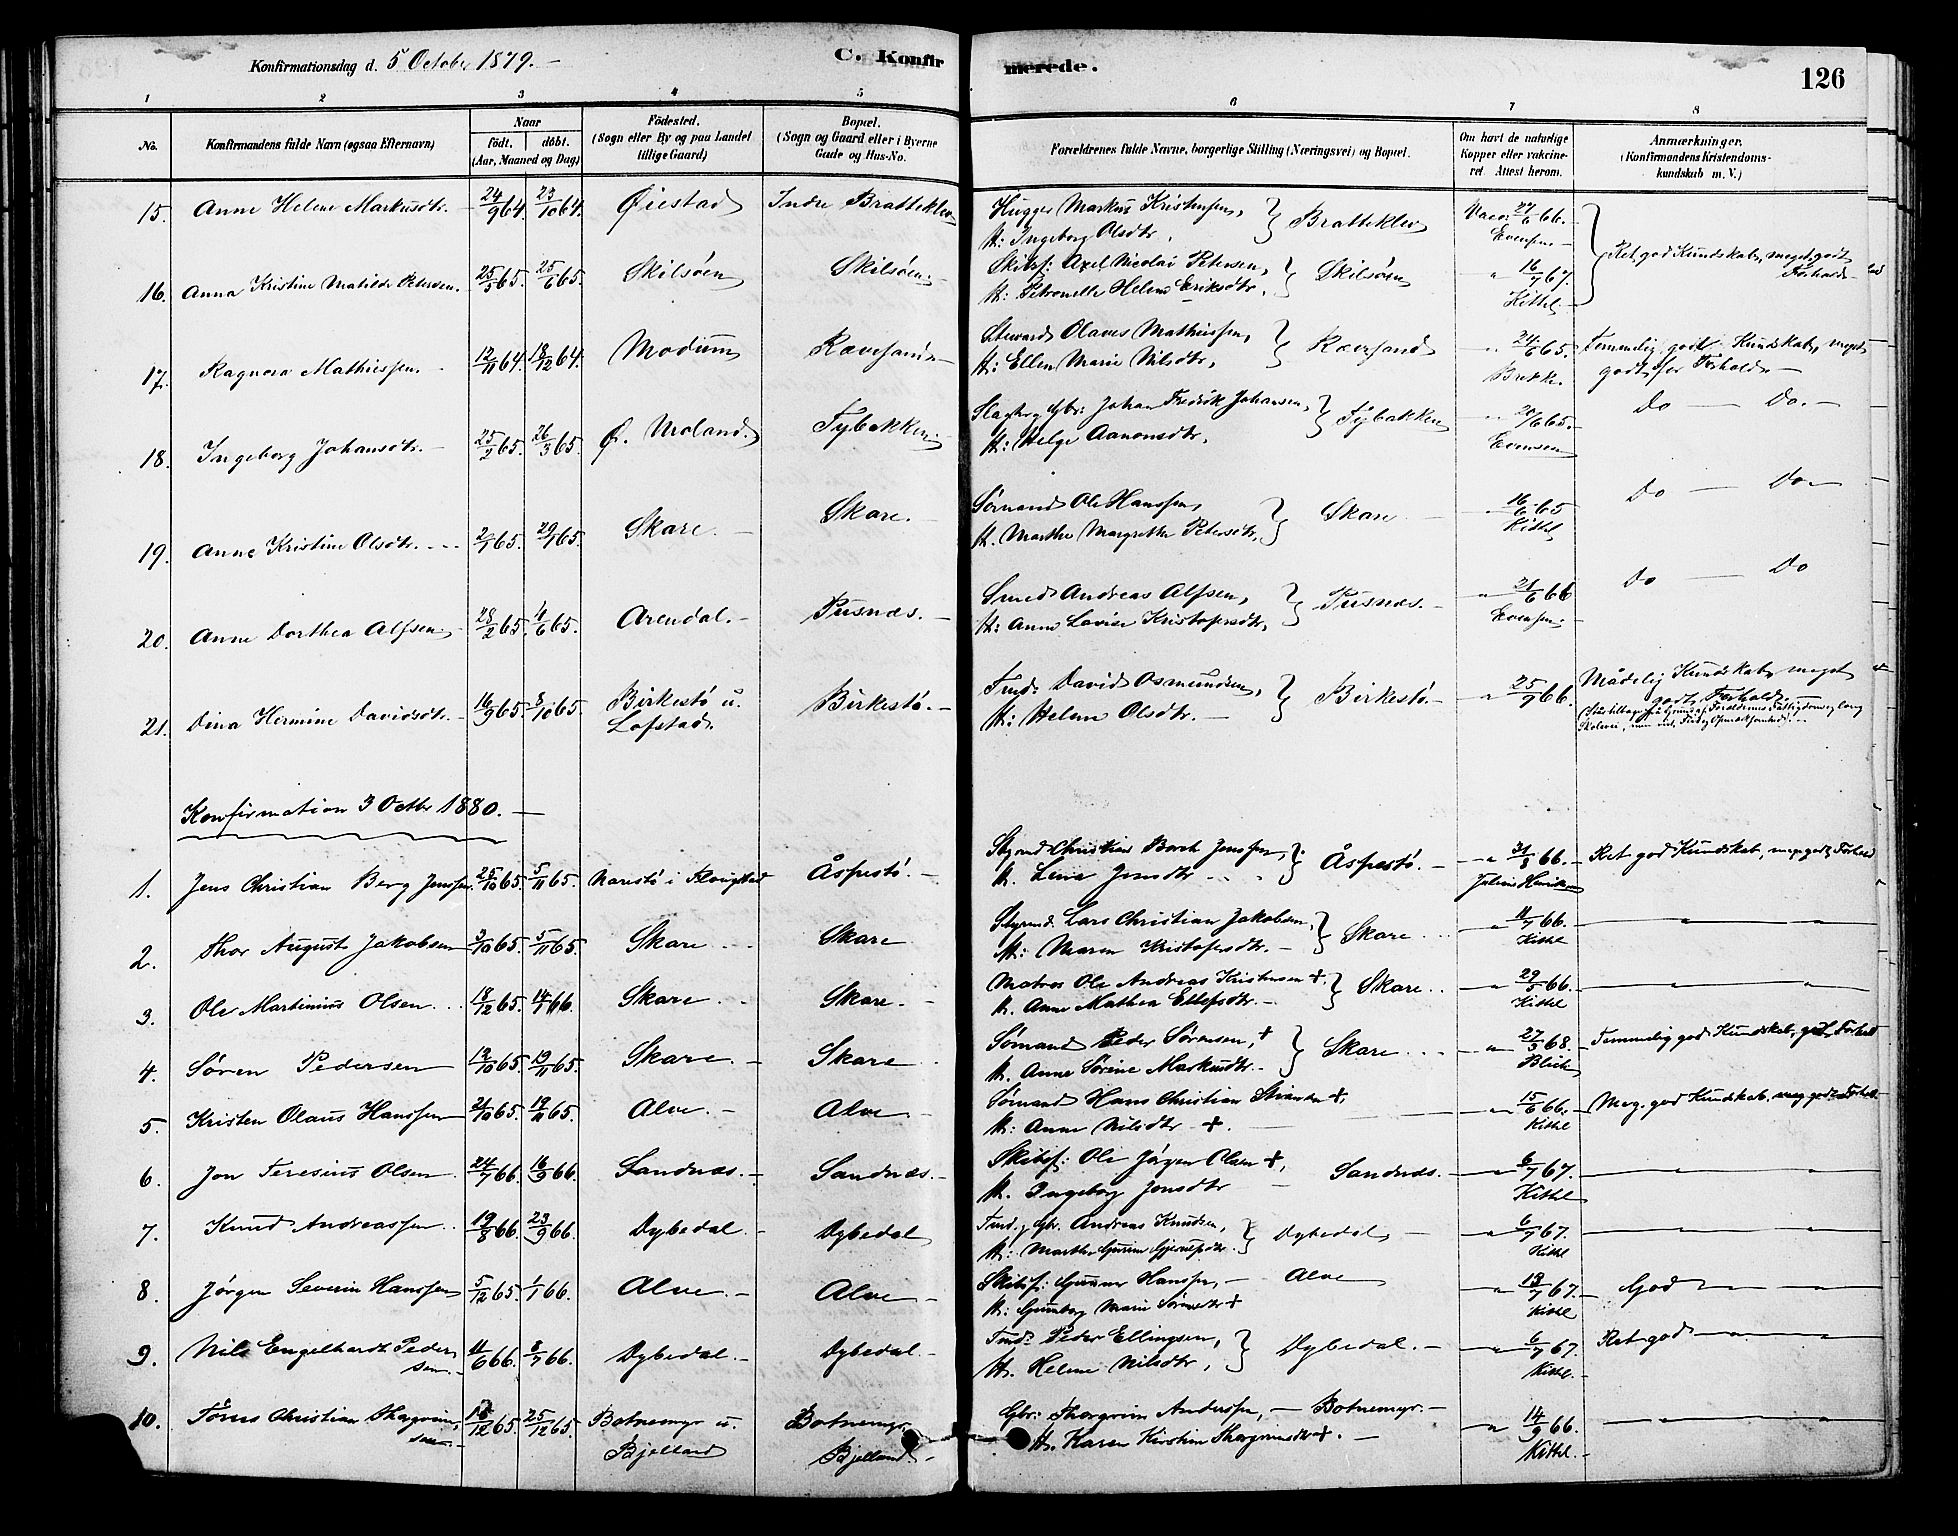 Konfirmationsdag d. 5 October 1879. —
C. Konfir
merede.
126
1 2 3 4 5 6 7 8
No.
Konfirmandens fulde Navn (ogsaa Efternavn)
Naar
födt, döbt.
(Aar, Maaned og Dag)
Födested.
(Sogn eller By og paa Landet
tillige Gaard)
Bopæl.
(Sogn og Gaard eller i Byerne
Gade og Hus-No.
Forældrenes fulde Navne, borgerlige Stilling (Næringsvei) og Bopæl.
Om havt de naturlige
Kopper eller vakcine-
ret. Attest herom.
Anmærkninger.
(Konfirmandens Kristendoms-
kundskab m. V.)
15. Anne Helene Markusdtr. 24/9 64. 23/10 64. Øiestad Indre Bratteklev
Hugger Markus Kristensen, } Bratteklev Vacc. 27/6 66.
H: Ingeborg Olsdtr. Evensen
16. Anna Kristine Matilde Petersen. 25/5 65. 25/6 65. Skilsøen Skilsøen.
Skibsf: Axel Nicolai Petersen, } Skilsøen " 16/7 67.
H: Petronelle Helene Eriksdtr. Kittel
Ret god Kundskab, meget godt
Forhold
17. Ragnora Mathiesen. 12/11 64. 18/12 64. Modum Rævesand
Steward Olaves Mathiesen, } Rævesand " 24/6 65.
H: Ellen Marie Nilsdtr. Brekke.
Temmelig god Kundskab, meget
godt Forhold
18. Ingeborg Johansdtr. 25/2 65. 26/3 65. Ø. Moland. Tybakken
Gbr: Johan Fredrik Johansen, } Tybakken " 20/6 65.
H: Helge Aanonsdtr. Evensen
Do — Do. —
19. Anne Kristine Olsdtr. 2/1 65. 29/1 65. Skare. Skare.
Sømand Ole Hansen, } Skare " 16/6 65
H. Marthe Margrethe Petersdtr. Kittel
Do — Do
20. Anne Dorthea Alfsen. 28/2 65. 4/6 65. Arendal. Pusnæs.
Smed Andreas Alfsen, } Pusnæs. " 21/6 66
H: Anne Lovise Kristofersdtr. Evensen
Do — Do
21. Dina Hermine Davidsdtr. 16/9 65. 8/10 65. Birkestø u. Birkestø.
Lofstad.
Tmd. David Osmundsen, } Birkestø. " 25/9 66.
H: Helene Olsdtr. —
Mådelig Kundskab, meget
godt Forhold
Konfirmation 3 Octbr 1880. —
1. Jens Christian Berg Jensen. 25/10 65. 5/11 65. Narestø i Flosta Åspestø. —
Christian Berch Jensen, } Åspestø. " 31/8 66.
H. Lena Jensdtr
Ret god Kundskab, meg. godt Forhold
2. Thor August Jakobsen 3/10 65. 5/11 65. Skare Skare
Styrmd. Lars Christian Jakobsen, } Skare " 11/7 66.
H: Maren Kristofersdtr. Kittel
3. Ole Martinius Olsen. 18/12 65. 14/1 66. Skare Skare.
Matros Ole Andreas Kristensen +. } Skare " 29/5 66.
H. Anne Mathea Ellefsdtr. Kittel
4. Søren Pedersen 12/10 65. 19/11 65. Skare. Skare
Sømand Peder Sørensen, + } Skare " 27/3 68
H. Anne Sørine Markusdtr. Blich
Temmelig god Kundskab, godt Forhold
5. Kristen Olaus Hansen 21/10 65. 19/11 65. Alve. Alve
Sømand Hans Christian +. " 15/6 66.
H: Anne Nilsdtr +. Kittel
Meg. god Kundskab. meg godt Forhold
6. Jon Teresius Olsen 24/7 66. 16/9 66. Sandnæs. Sandnæs.
Skibsf: Ole Jörgen Olsen +, Sandnæs. " 6/7 67.
H. Ingeborg Jensdtr Kittel
7. Knud Andreassen 19/8 66. 23/9 66. Dybedal Dybedal
Tmd. Gbr. Andreas Knudsen, } Dybedal " 6/7 67.
H: Marthe Gurine Kittel
8. Jörgen Severin Hansen 5/12 65. 1/1 66. Alve. Alve
Skibsf: Gunner Hansen, Alve " 13/7 67.
H: Gunnborg Marie Kittel
God
9. Nils Engelhardt Peder 11/6 66. 8/7 66. Dybedal. Dybedal.
sen.
Tmd: Peder Ellingsen, } Dybedal. " 6/7 67.
H. Helene Nilsdtr, Kittel
Ret god
10. Christian Thorgrim 18/12 65. 25/12 65. Botnemyr u. Botnemyr
sen. Bjelland Bjelland
Gbr: Thorgrim Andersen, — Botnemyr. " 14/9 66.
H. Karen Kirstin Thorgrimsdtr +. Kittel